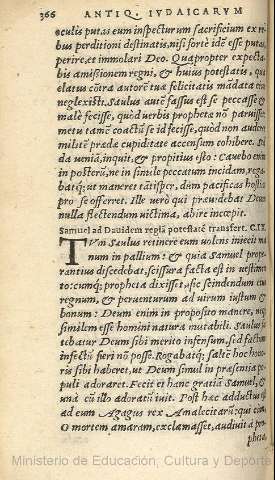 366 ANTIQ. IVDAICARVM
oculis putas eum inspecturum sacrificium ex re
bus perditioni destinatis, nisi fortè idē esse putas,
perire, et immolari Deo. Quapropter expecta
bis amissionem regni, & huius potestatis, qua
elatus cōtra autorē tua felicitatis mādata eius
neglexisti. Saulus autē fassus est se peccasse &
malè fecisse, quòd verbis prophetæ nō paruisset:
metu tamē coactū se id fecisse, quòd non auderet
militē prædæ cupiditate accensum cohibere. Sed
da ueniā, inquit, & propitius esto: Cauebo enim
in posterū, ne in simile peccatum incidam. roga
batq́; ut maneret tātisper, dum pacificas hostias
pro se offerret. Ille verò qui præuidebat Deum
nulla flectendum uictima, abire incœpit.
Samuel ad Dauidem regiā potestatē transfert. C. IX.
TVm Saulus retinere eum uolens iniecit ma
num in pallium: & quia Samuel prope
rantius discedebat, scissura facta est in uestimen
to: cumq́; propheta dixisset, sic scindendum eius
regnum, & peruenturum ad uirum iustum &
bonum: Deum enim in proposito manere, neq́;
similem esse homini natura mutabili. Saulus fa
tebatur Deum sibi merito infensum, sed factum
infectū fieri nō posse. Rogabatq́; saltē hoc hono
ris sibi haberet, ut Deum simul in præsentia po
puli adoraret. Fecit et hanc gratiā Samuel, &
unà cū illo adoratū iuit. Post hac adductus est
ad eum Agagus rex Amalecitarū: qui cum
O mortem amaram, exclamasset, audiuit à pro
pheta
Ministerio de Educación, Cultura y Deporte